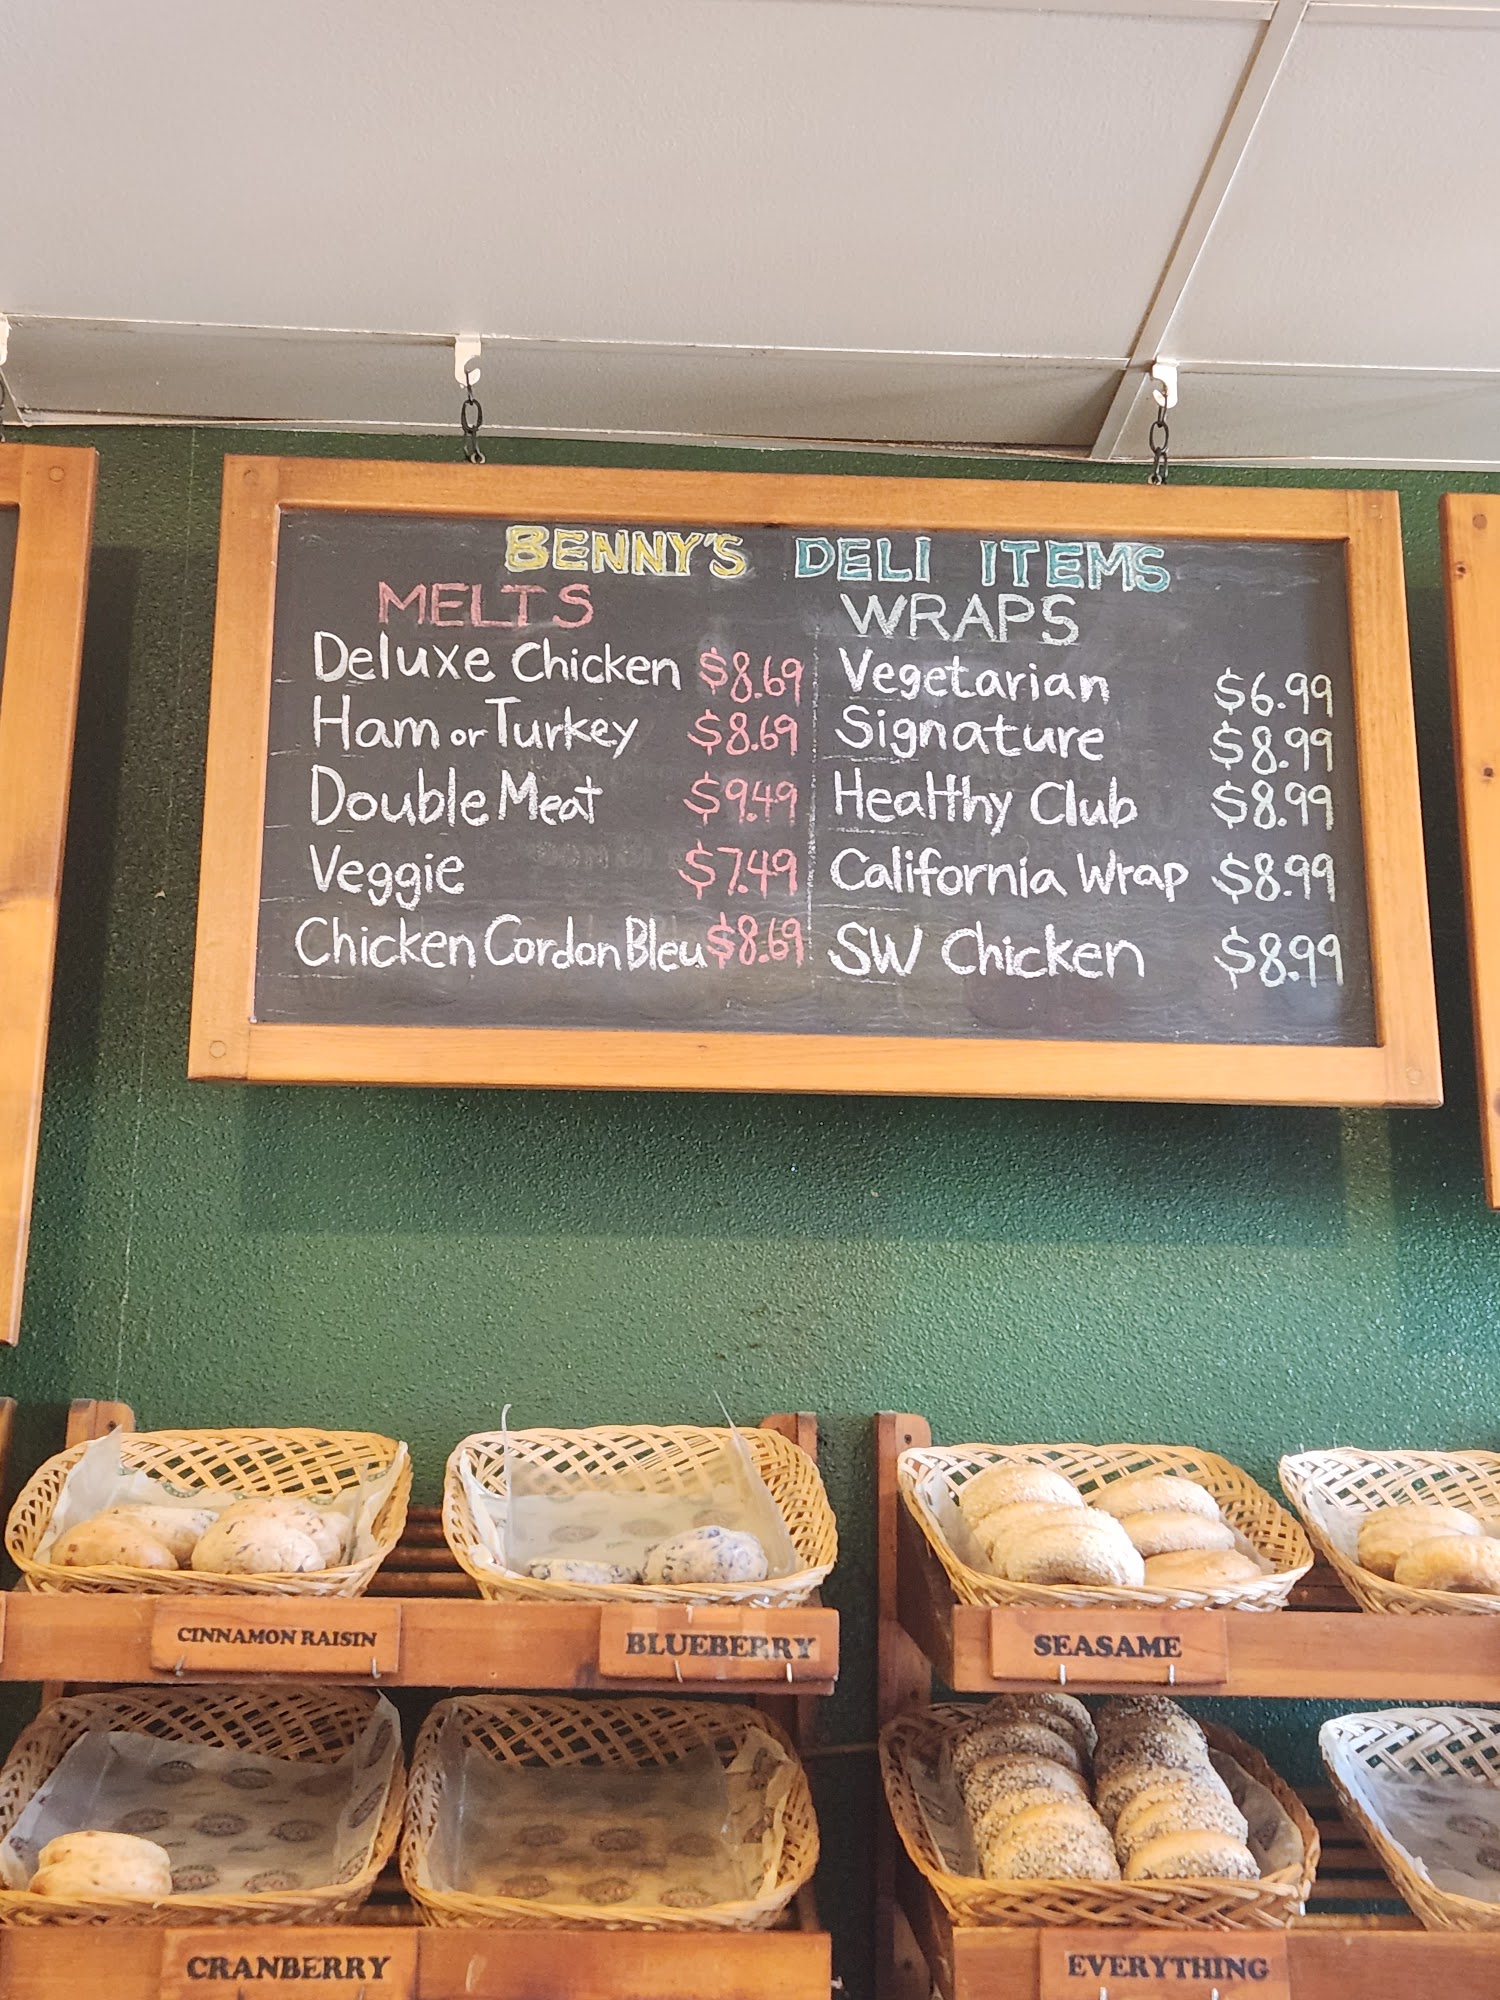 BENNY'S DELI ITEMS
MELTS
Deluxe Chicken $8.69
Ham or Turkey $8.69
Double Meat $9.49
Veggie $7.49
Chicken Cordon Bleu $8.69
WRAPS
Vegetarian $6.99
Signature $8.99
Healthy Club $8.99
California Wrap $8.99
SW Chicken $8.99
CINNAMON RAISIN
BLUEBERRY
SEASAME
CRANBERRY
EVERYTHING